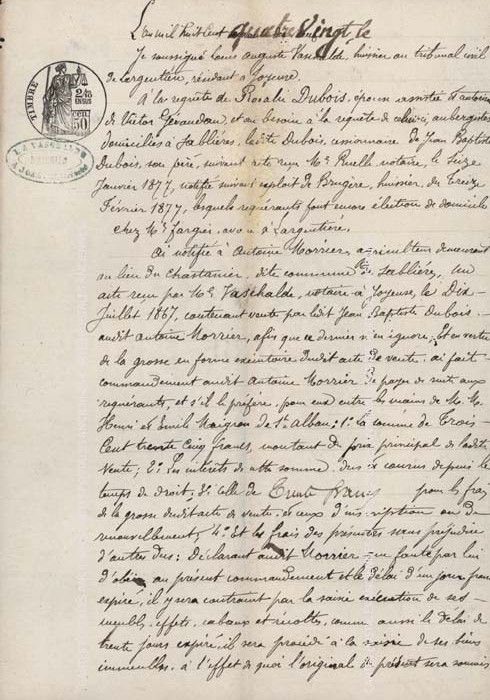 L'an mil huit cent quatre vingt le
Je soussigné Louis Auguste Vaschalde, huissier au tribunal civil
de Largentière, résidant à Joyeuse.
A la requête de Rosalie Dubois, épouse assistée d'Antoine
de Victor Géraudon, et au besoin à la requête de celui-ci, aubergistes
domiciliés à Sablières, ladite Dubois, cessionnaire de Jean Baptiste
Dubois, son père, suivant acte reçu Me Ruelle notaire, le Seize
Janvier 1877, notifié suivant exploit de Brugère, huissier, du Treize
Février 1877, lesquels requérants font encore élection de domicile
chez Me avoué à Largentière.
Ai notifié à Antoine Morrier, agriculteur demeurant
au lieu du Chastanier, dite commune de Sablières, Un
acte reçu par Me Vaschalde, notaire à Joyeuse, le Dix
Juillet 1867, contenant vente par ledit Jean Baptiste Dubois
audit Antoine Morrier, afin que ce dernier n'en ignore; Et en vertu
de la grosse en forme exécutoire dudit acte de vente, ai fait
commandement audit Antoine Morrier de payer de suite aux
requérants, et s'il le préfère, pour eux entre les mains de M. M.
Henri et Emile Maigron de St Alban; 1° la somme de Trois
Cent trente cinq francs, montant du prix principal de ladite
Vente; 2° Les intérêts de cette somme dus et courus depuis le
temps de droit; 3° celle de Trente francs pour les frais
de la grosse dudit acte de vente, et ceux d'inscription ou de
renouvellement; 4° Et les frais des présentes sans préjudice
d'autres dus: Déclarant audit Morrier que faute par lui
d'obéir au présent commandement et le délai d'un jour franc
expiré, il y sera contraint par la saisie exécution de ses
meubles, effets, cabaux et récoltes, comme aussi le délai de
trente jours expiré, il sera procédé à la saisie de ses biens
immeubles, à l'effet de quoi l'original du présent sera soumis
TIMBRE
2/10
EN SUS
50